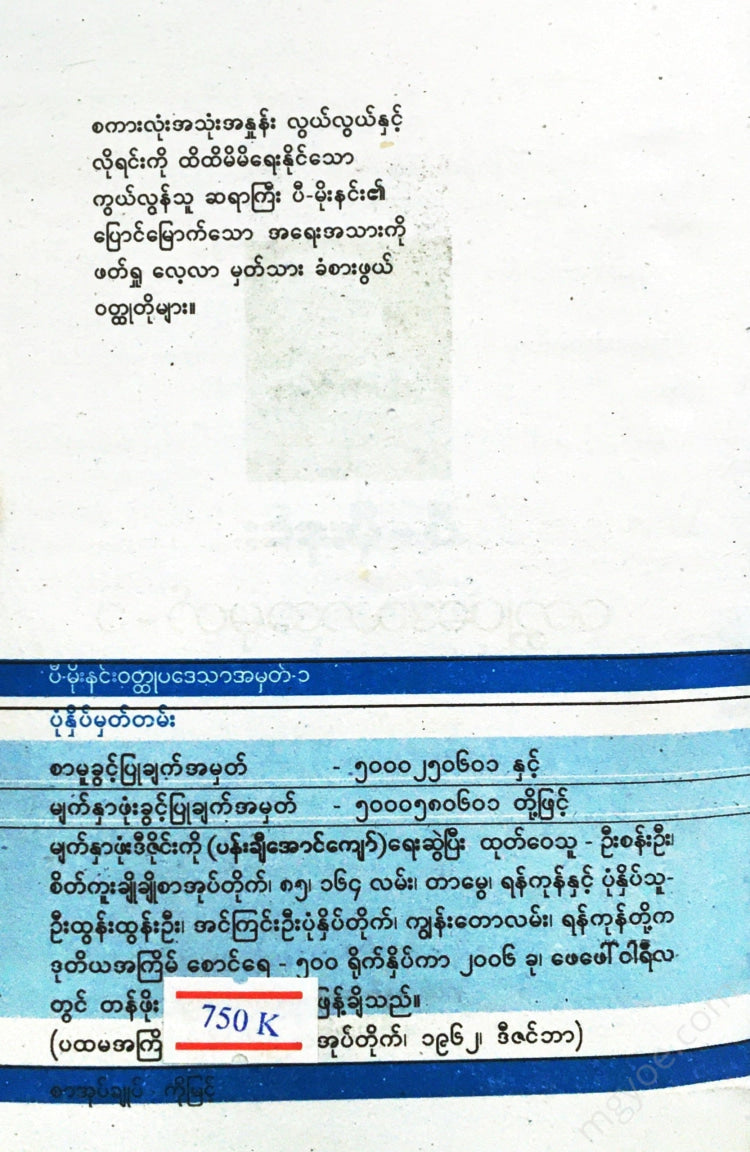 စကားလုံးအသုံးအနှုန်း လွယ်လွယ်နှင့်
လိုရင်းကို ထိထိမိမိရေးနိုင်သော
ကွယ်လွန်သူ ဆရာကြီး ပီ-မိုးနင်း၏
ပြောင်မြောက်သော အရေးအသားကို
ဖတ်ရှု လေ့လာ မှတ်သား ခံစားဖွယ်
ဝတ္ထုတိုများ။
ပီ-မိုးနင်းဝတ္ထုပဒေသာအမှတ်-၁
ပုံနှိပ်မှတ်တမ်း
စာမူခွင့်ပြုချက်အမှတ် - ၅၀၀၀၂၅၀၆၀၁ နှင့်
မျက်နှာဖုံးခွင့်ပြုချက်အမှတ် - ၅၀၀၀၅၈၀၆၀၁ တို့ဖြင့်
မျက်နှာဖုံးဒီဇိုင်းကို (ပန်းချီအောင်ကျော်)ရေးဆွဲပြီး ထုတ်ဝေသူ - ဦးစန်းဦး၊
စိတ်ကူးချိုချိုစာအုပ်တိုက်၊ ၈၅၊ ၁၆၄ လမ်း၊ တာမွေ၊ ရန်ကုန်နှင့် ပုံနှိပ်သူ-
ဦးထွန်းထွန်းဦး၊ အင်ကြင်းဦးပုံနှိပ်တိုက်၊ ကျွန်းတောလမ်း၊ ရန်ကုန်တို့က
ဒုတိယအကြိမ် စောင်ရေ - ၅၀၀ ရိုက်နှိပ်ကာ ၂၀၀၆ ခု၊ ဖေဖော်ဝါရီလ
တွင် တန်ဖိုး 750 K ဖြန့်ချိသည်။
(ပထမအကြိ အုပ်တိုက်၊ ၁၉၆၂၊ ဒီဇင်ဘာ)
စာအုပ်ချုပ် ကိုမြင့်
mgyoe.com